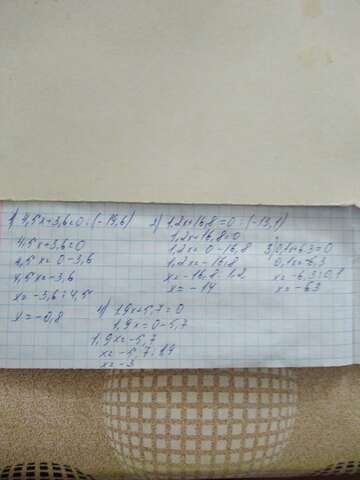 1) 4,5x+3,6=0:(-19,6)
4,5x+3,6=0
4,5x=0-3,6
4,5x=-3,6
x=-3,6:4,5
x=-0,8
2) 1,2x+16,8=0:(-13,1)
1,2x+16,8=0
1,2x=0-16,8
1,2x=-16,8
x=-16,8:1,2
x=-14
3) 0,1x+6,3=0
0,1x=-6,3
x=-6,3:0,1
x=-63
4) 1,9x+5,7=0
1,9x=0-5,7
1,9x=-5,7
x=-5,7:1,9
x=-3